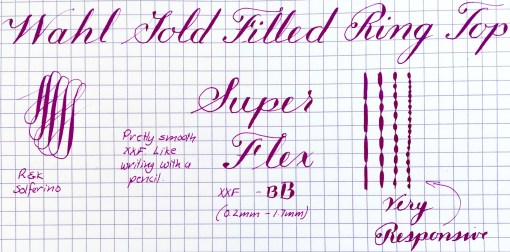 Wahl Gold Filled Ring Top
Super
Flex
XXF - BB
(0.2mm - 1.7mm)
Prctly smooth
XXF. Like
writing with a
pencil
R&K
Solferino
Very
Responsive